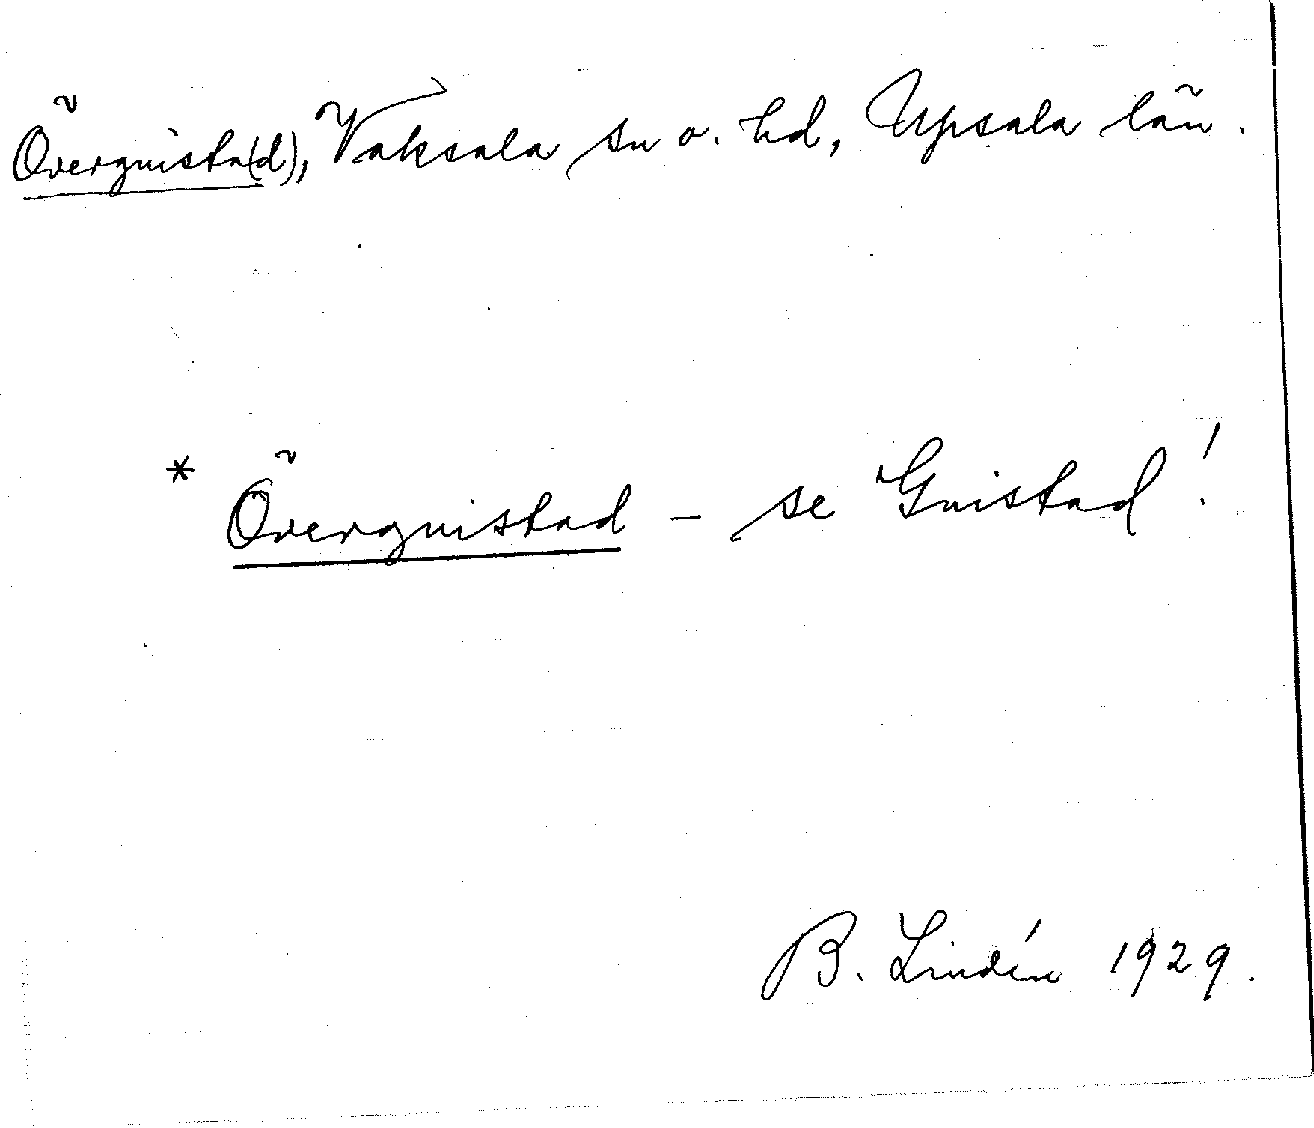 Övergnista(d), Vaksala sn o. hd, Upsala län.
* Övergnistad – se Gnistad!
B. Lindén 1929.